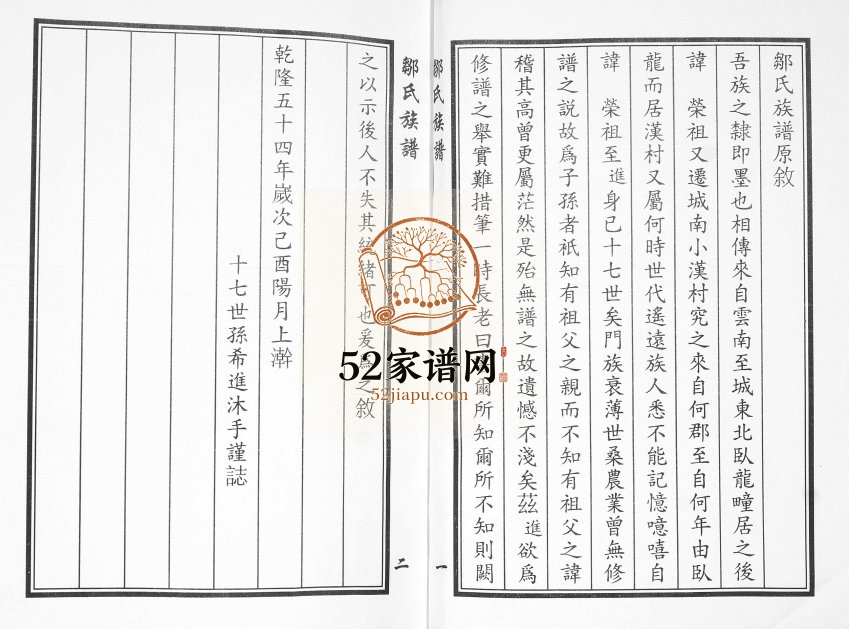 鄒氏族譜原敘
吾族之隸即墨也相傳來自雲南至城東北臥龍疃居之後
諱 榮祖又遷城南小漢村究之來自何郡至自何年由臥
龍而居漢村又屬何時世代遙遠族人悉不能記憶噫嘻自
諱 榮祖至進身已十七世矣門族衰薄世桑農業曾無修
譜之說故爲子孫者祇知有祖父之親而不知有祖父之諱
稽其高曾更屬茫然是殆無譜之故遺憾不淺矣茲進欲爲
修譜之舉實難措筆一時長老曰 爾所知爾所不知則闕
鄒氏族譜
一
鄒氏族譜
二
之以示後人不失其 緒 也爰爲之敘
乾隆五十四年嵗次己酉陽月上澣
十七世孫希進沐手謹誌
52家谱网
52jiapu.com